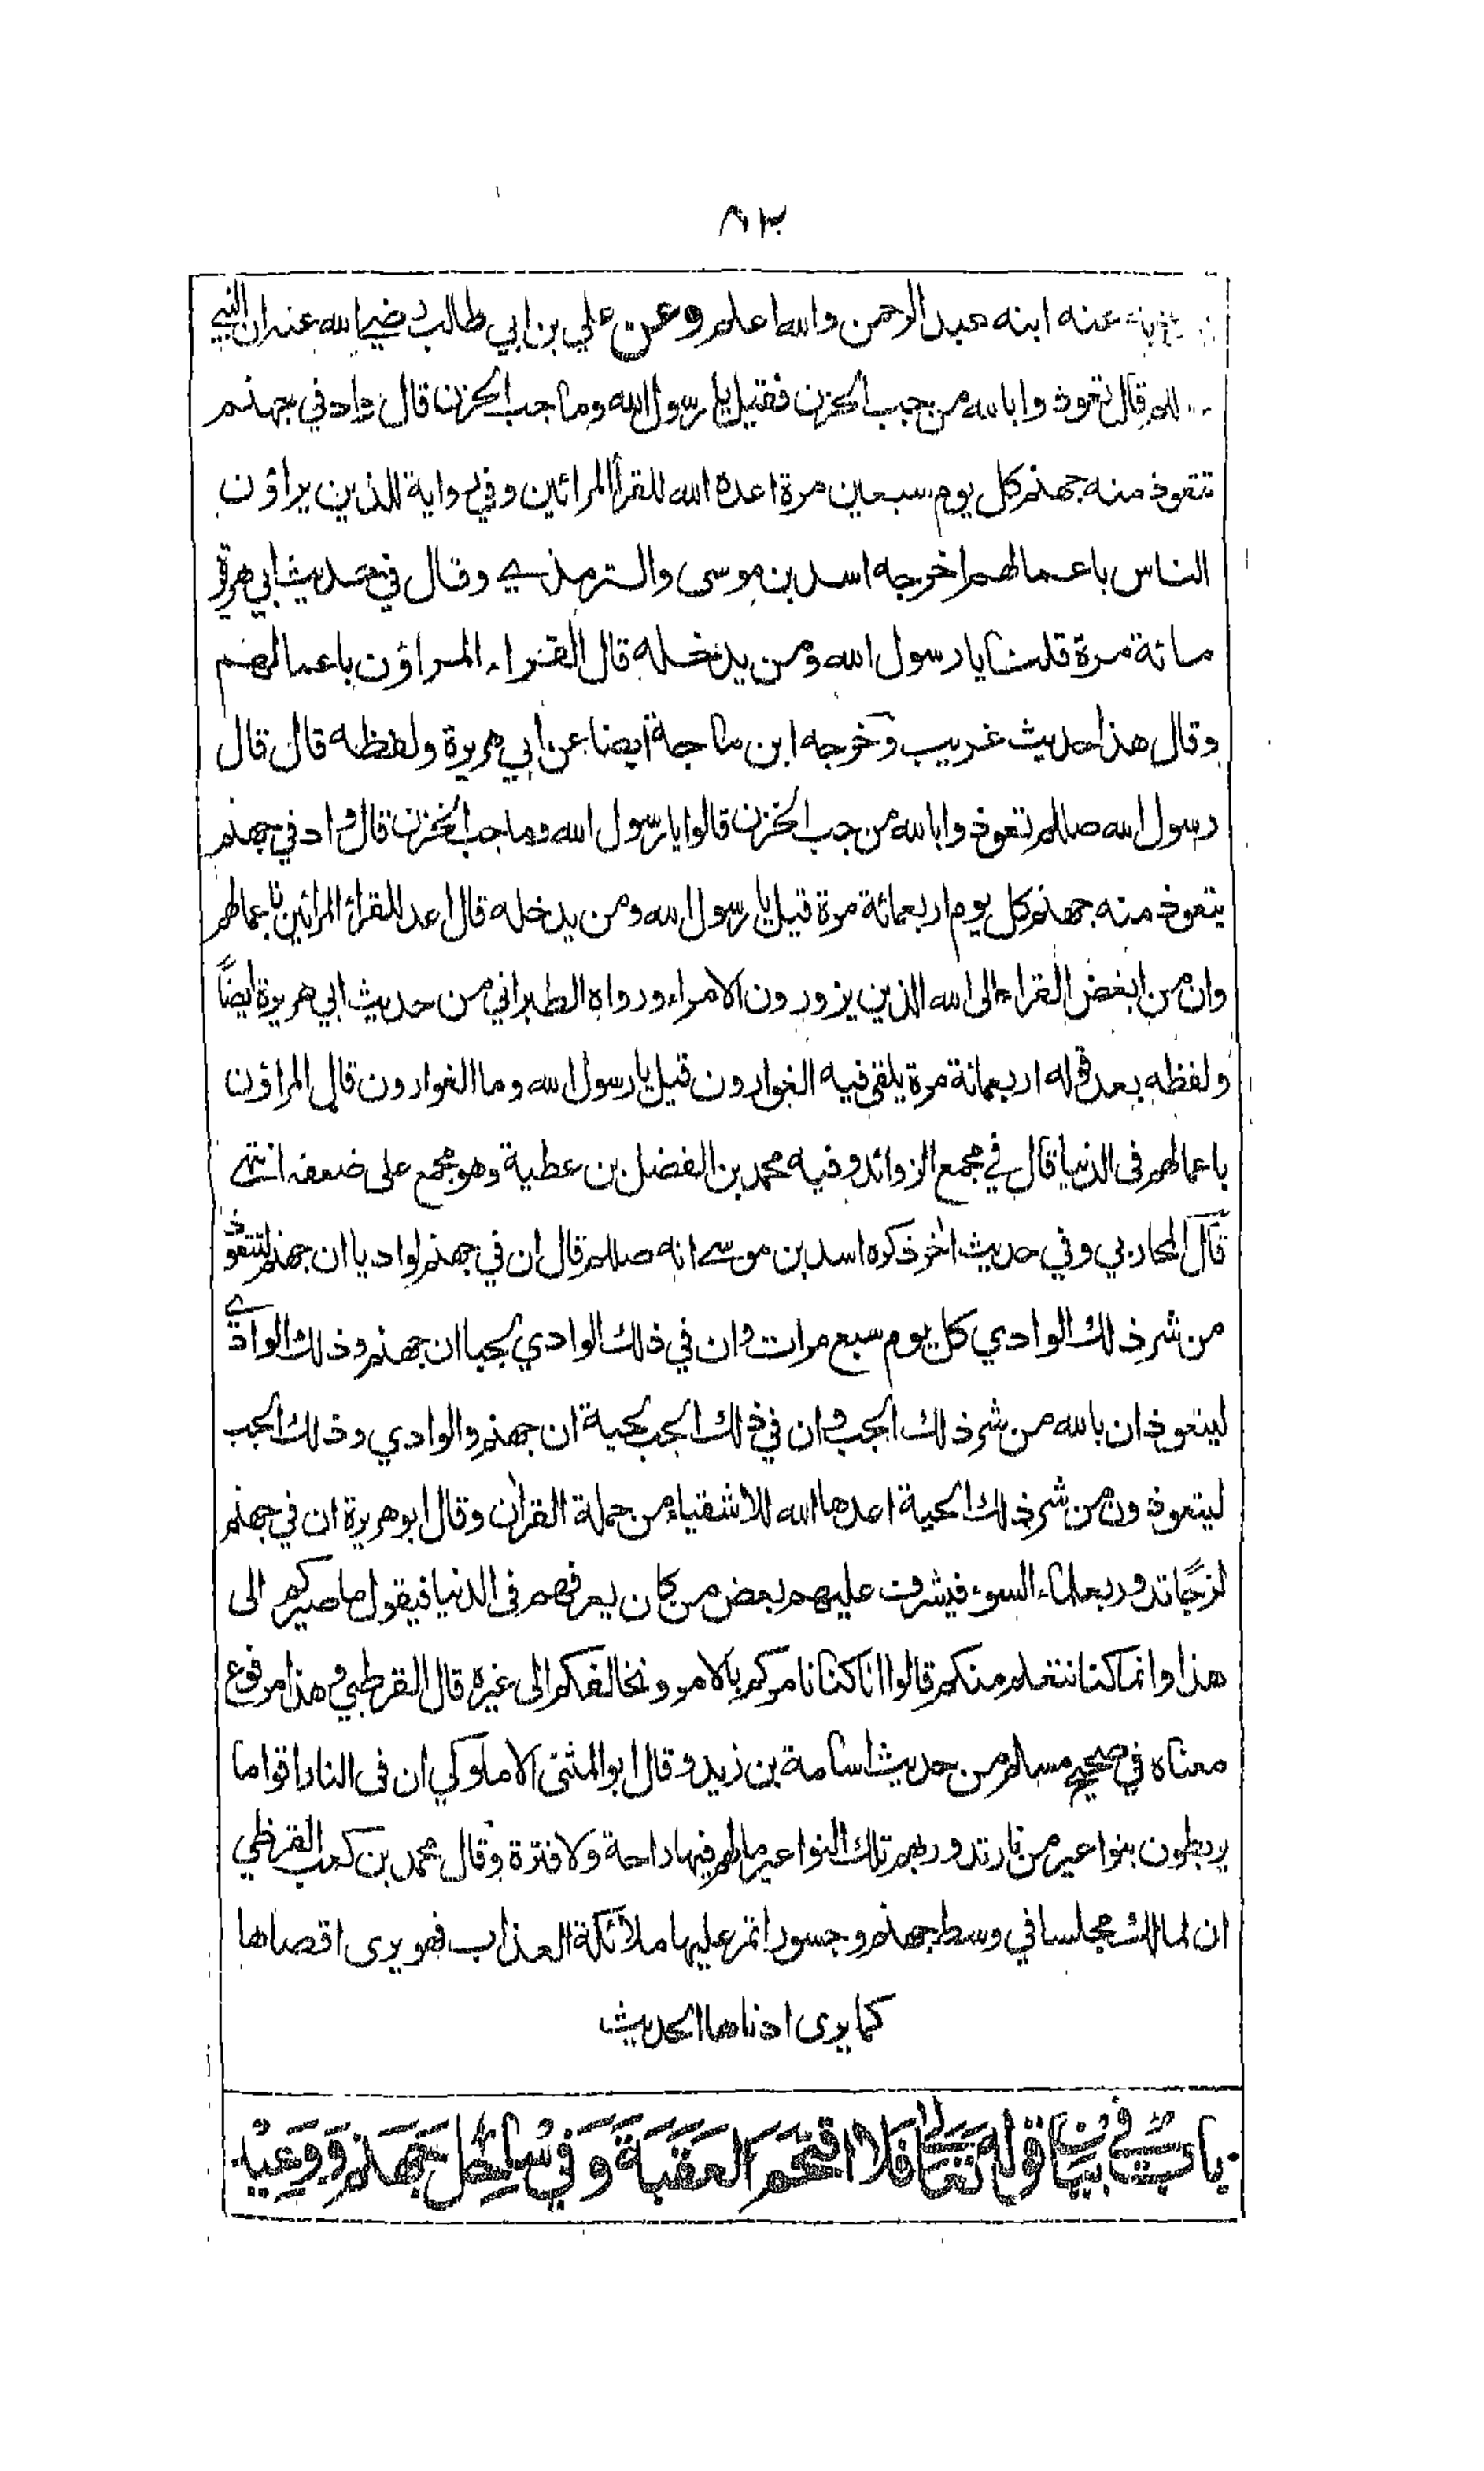 ٨٣
عنه ابنه عبد الرحمن والله اعلم وعن علي بن ابي طالب رضي الله عنه ان النبي
قال تعوذوا بالله من جب الحزن فقيل يا رسول الله وما جب الحزن قال واد في جهنم
تتعوذ منه جهنم كل يوم سبعين مرة اعده الله للقرأ المرائين وفي رواية للذين يراؤن
الناس باعمالهم اخرجه اسد بن موسى والترمذي وقال في حديث ابي هريرة
مائة مرة قلنا يا رسول الله ومن يدخله قال القراء المراؤن باعمالهم
وقال هذا حديث غريب وخرجه ابن ماجة ايضا عن ابي هريرة ولفظه قال قال
رسول الله صللم تعوذوا بالله من جب الحزن قالوا يا رسول الله وما جب الحزن قال واد في جهنم
يتعوذ منه جهنم كل يوم اربعمائة مرة قيل يا رسول الله ومن يدخله قال اعد للقراء المرائين باعمالهم
وان من ابغض القراء الى الله الذين يزورون الامراء ورواه الطبراني من حديث ابي هريرة ايضاً
ولفظه بعد قوله اربعمائة مرة يلقى فيه الغوارون قيل يا رسول الله وما الغوارون قال المراؤن
باعمالهم في الدنيا قال في مجمع الزوائد وفيه محمد بن الفضل بن عطية وهو مجمع على ضعفه انتهى
قال المحاربي وفي حديث اخر ذكره اسد بن موسى انه صللم قال ان في جهنم لواديا ان جهنم لتتعوذ
من شر ذلك الوادي كل يوم سبع مرات وان في ذلك الوادي لجبا ان جهنم وذلك الوادي
ليتعوذان بالله من شر ذلك الجب وان في ذلك الجب لحية ان جهنم والوادي وذلك الجب
ليتعوذون من شر ذلك الحية اعدها الله للاشقياء من حملة القران وقال ابو هريرة ان في جهنم
ارحًا تدور بعلماء السوء فيشرف عليهم بعض من كان يعرفهم في الدنيا فيقول ما صيركم الى
هذا وانما كنا نتعلم منكم قالوا انا كنا نامركم بالامر ونخالفكم الى غيره قال القرطبي وهذا مرفوع
معناه في صحيح مسلم من حديث اسامة بن زيد وقال ابو المثنى الاملوكي ان في النار اقواما
يربطون بنواعير من نار تدور بهم تلك النواعير ما لهم فيها راحة ولا فترة وقال محمد بن كعب القرظي
ان لمالك مجلسا في وسط جهنم وجسورا تمر عليها ملائكة العذاب فهو يرى اقصاها
كما يرى ادناها الحديث
بابٌ في بيان قوله تعالى فلا اقتحم العقبة وفي ساحل جهنم ووعيد